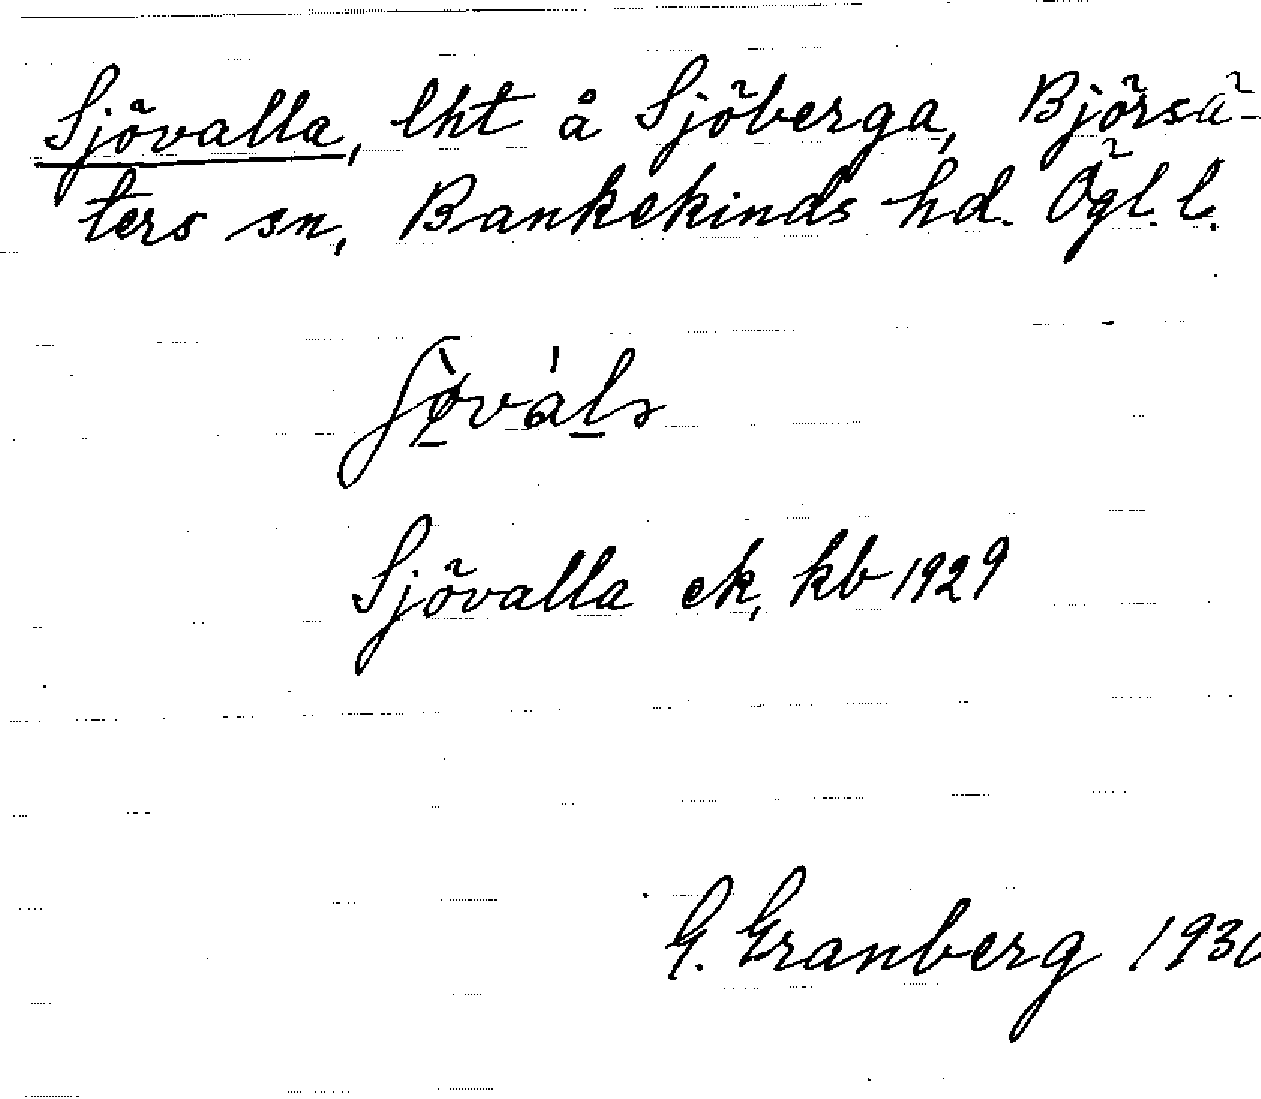 Sjövalla, lht å Sjöberga, Björsä-
ters sn, Bankekinds hd. Ögl. l.
Sjövalla ek, kb 1929
G. Granberg